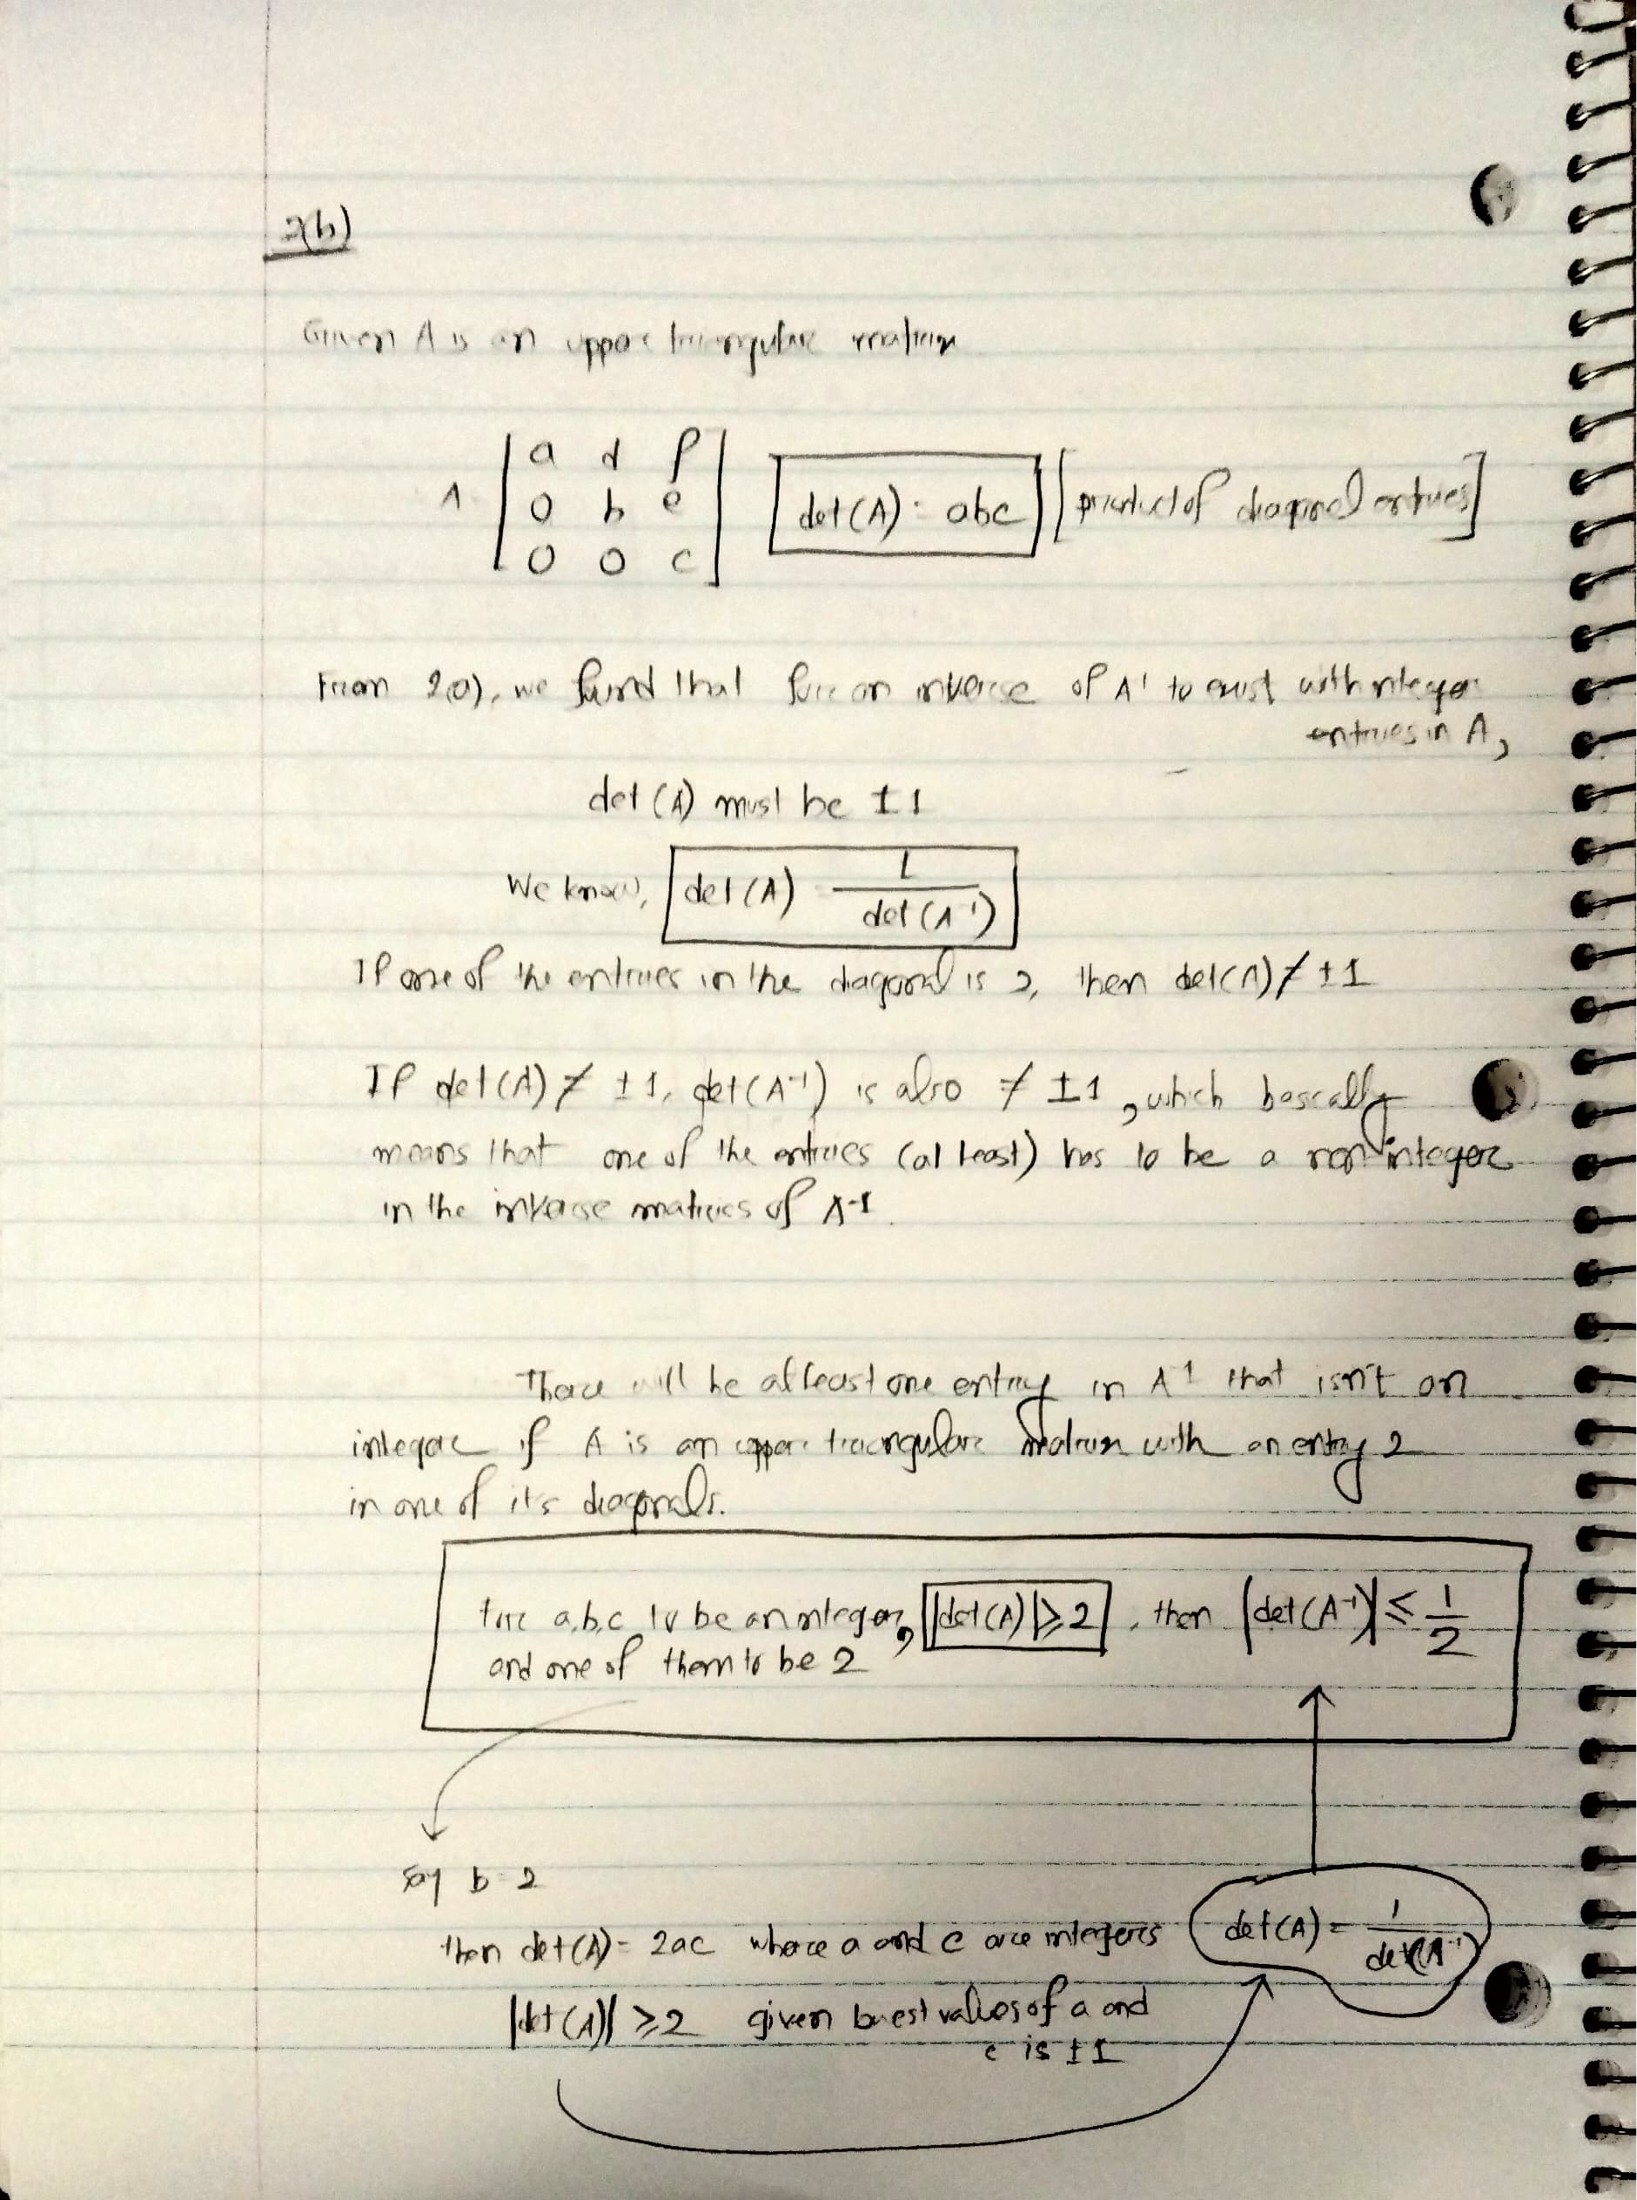 2(b)
Given A is an upper triangular matrix
A = [ a d f
0 b e
0 0 c ]
det(A) = abc [product of diagonal entries]
From 2(a), we found that for an inverse of A⁻¹ to exist with integer
entries in A,
det (A) must be ±1
We know, det (A) = 1 / det (A⁻¹)
If one of the entries in the diagonal is 2, then det(A) ≠ ±1
If det(A) ≠ ±1, det(A⁻¹) is also ≠ ±1, which bascally
means that one of the entries (at least) has to be a non integer
in the inverse matrices of A⁻¹.
There will be atleast one entry in A⁻¹ that isn't an
integer if A is an upper triangular matrix with an entry 2
in one of it's diagonals.
for a,b,c to be an integer, |det(A)| ≥ 2, then |det(A⁻¹)| ≤ 1/2
and one of them to be 2
Say b = 2
then det(A) = 2ac where a and c are integers det(A) = 1 / det(A⁻¹)
|det(A)| ≥ 2 given values of a and
c is ±1